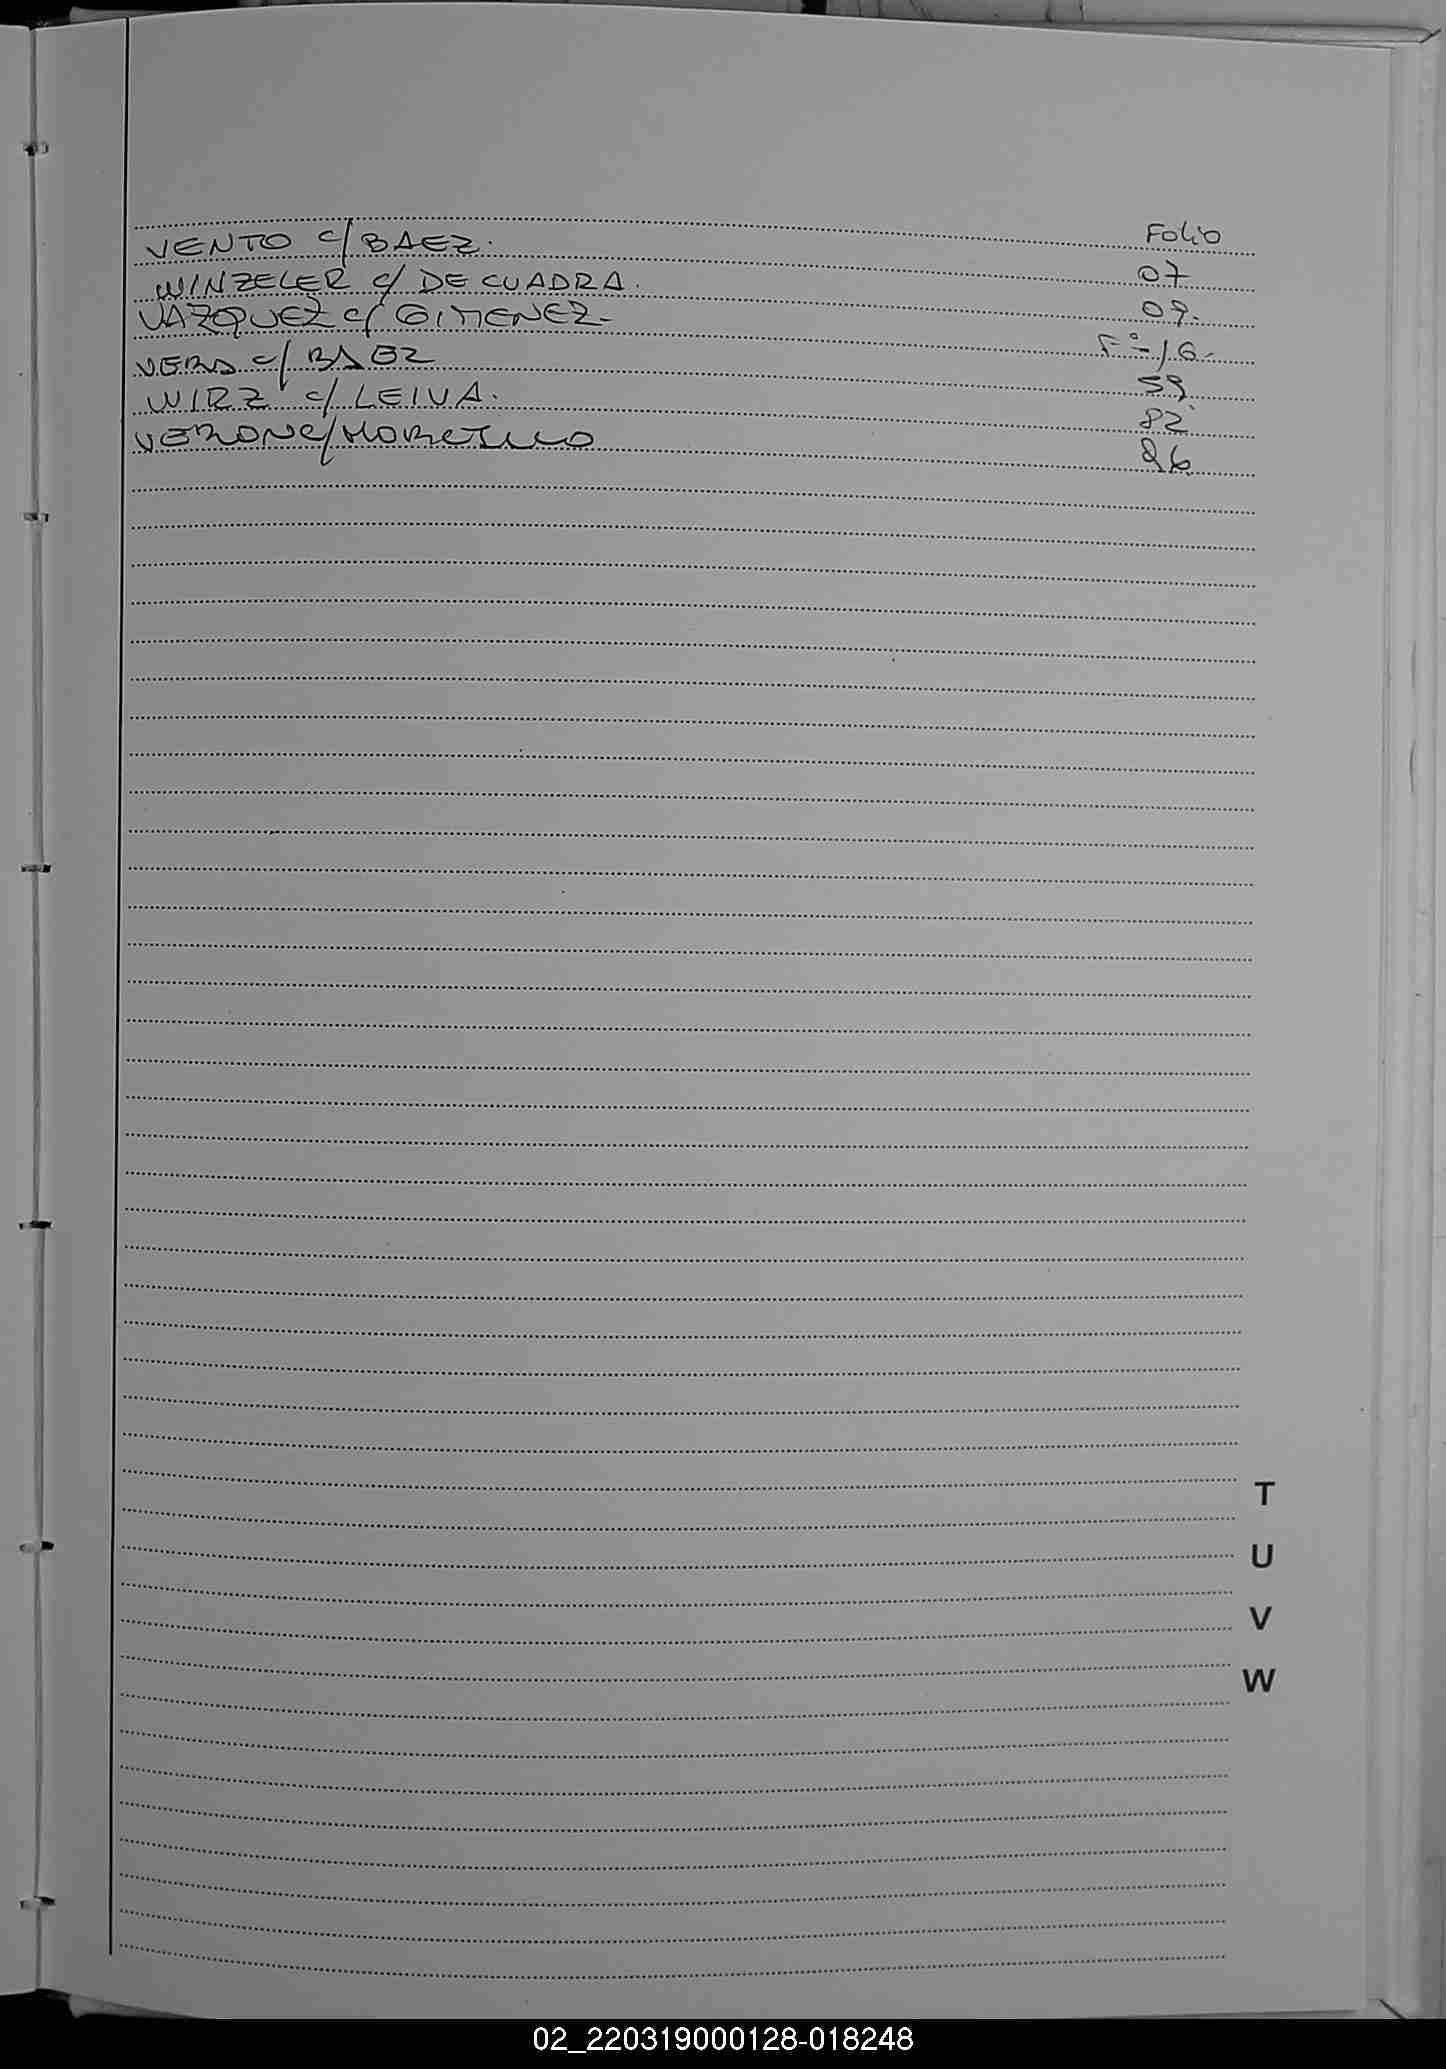 Folio
VENTO c/ BAEZ. 07
WINZELER c/ DE CUADRA. 09.
VAZQUEZ c/ GIMENEZ.- Fº-16-
VERA c/ BAEZ 59
WIRZ c/ LEIVA. 82
VERON c/ 86
T
U
V
W
02_220319000128-018248